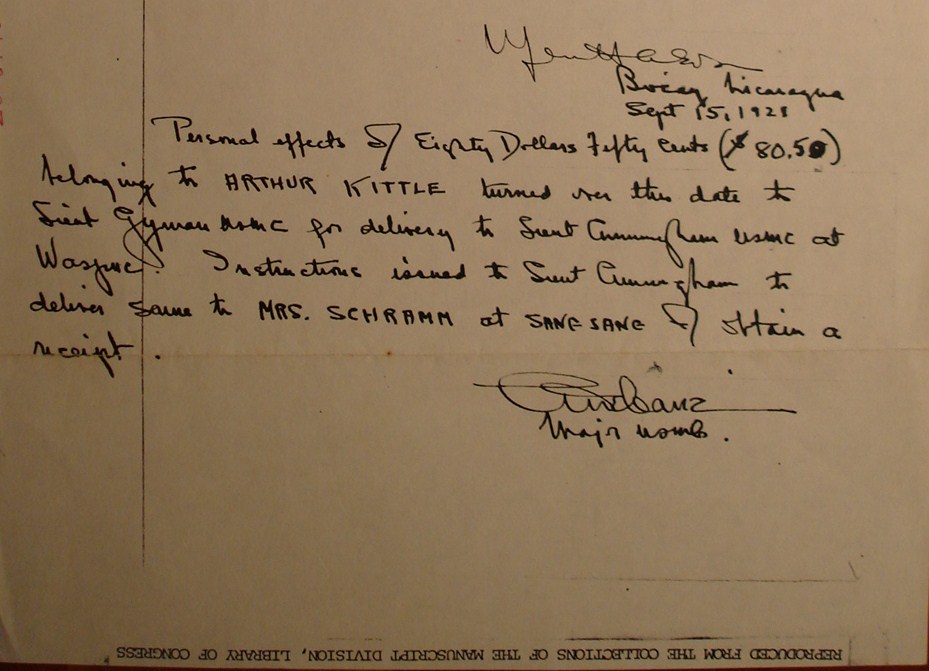 Bocay, Nicaragua
Sept 15, 1928
Personal effects & Eighty Dollars Fifty Cents ($ 80.50)
belonging to ARTHUR KITTLE turned over this date to
Lieut Gyman USMC for delivery to Lieut Cunningham USMC at
Waspuc. Instructions issued to Lieut Cunningham to
deliver same to MRS. SCHRAMM at SANGSANG & obtain a
receipt.
Major USMC.
REPRODUCED FROM THE COLLECTIONS OF THE MANUSCRIPT DIVISION, LIBRARY OF CONGRESS